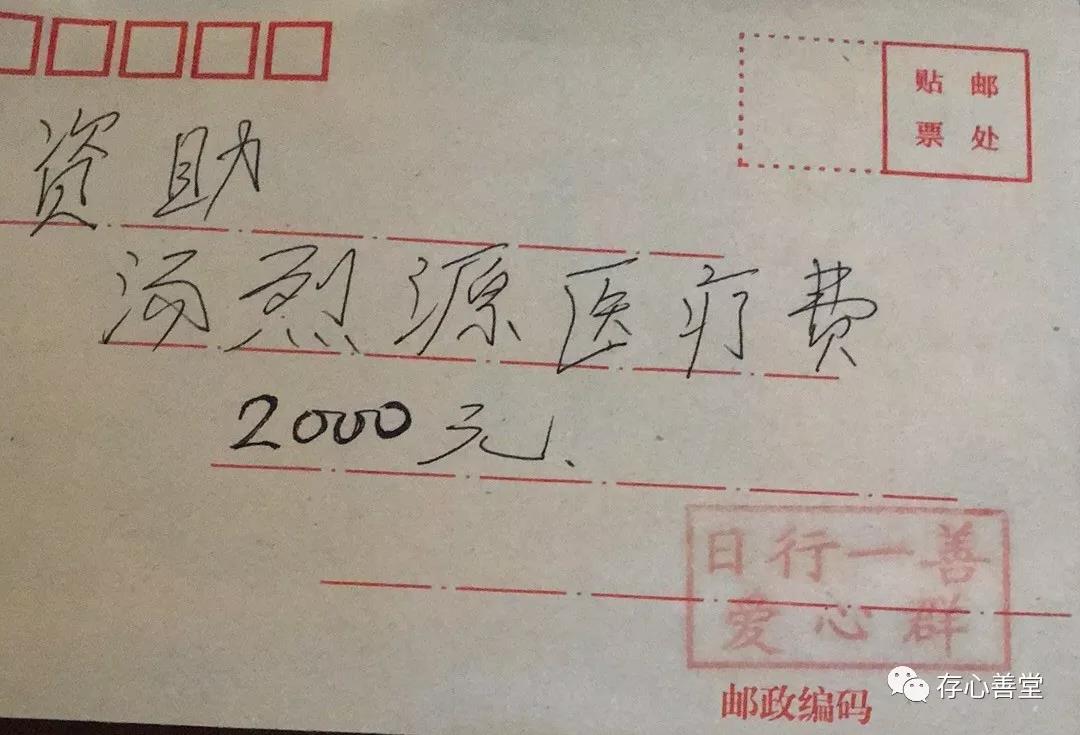 贴邮
票处
资助
汤烈源医疗费
2000元、
日行一善
爱心群
邮政编码
存心善堂